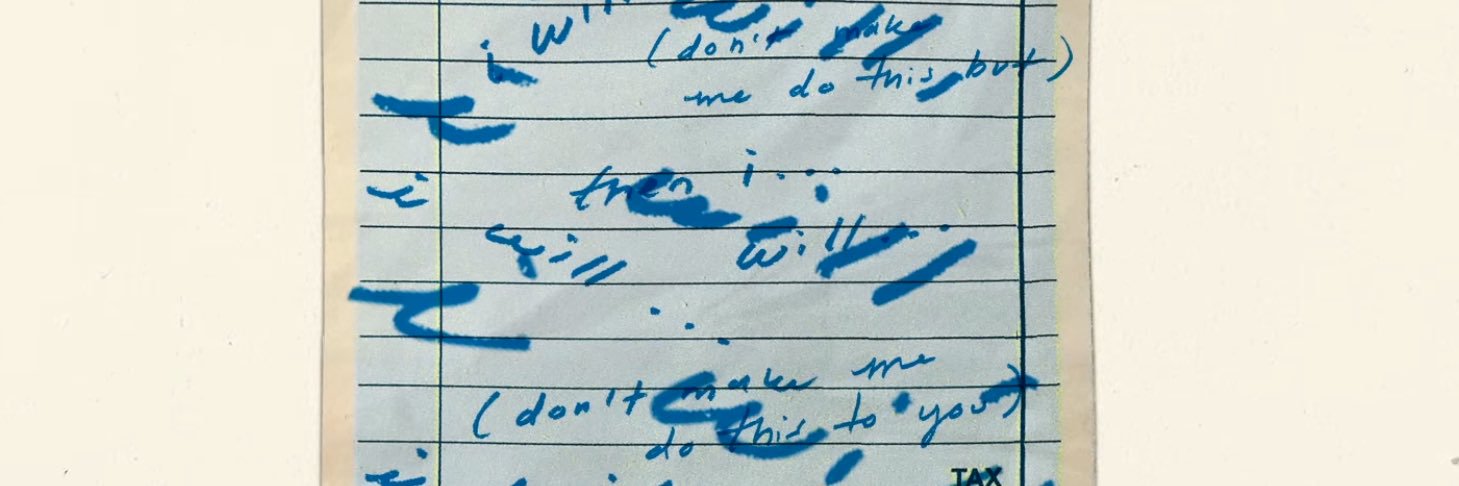 i will
(don't make
me do this, but)
i then i...
will will...
...
(don't make me
do this to you)
i
TAX